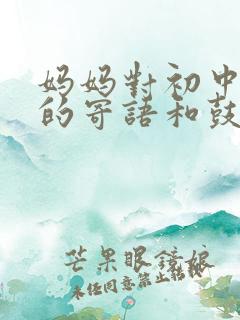 妈妈對初中
的寄語和鼓
芒果眼鏡娘
未任同意禁止轉載